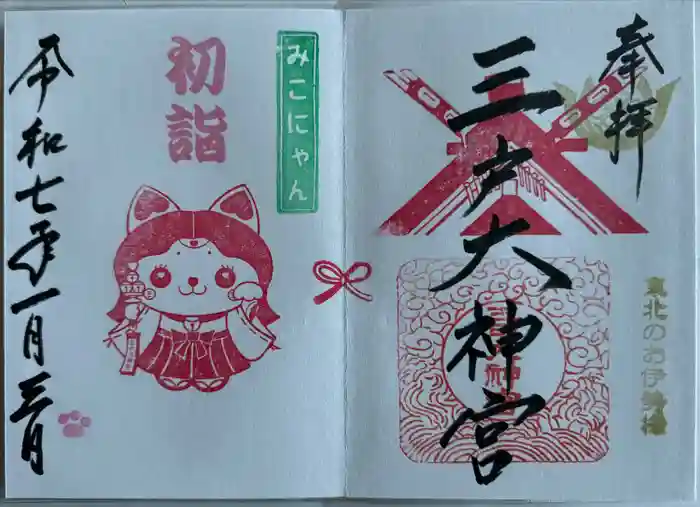 奉拝
三戸大神宮
東北のお伊勢様
みこにゃん
初詣
令和七年一月三日